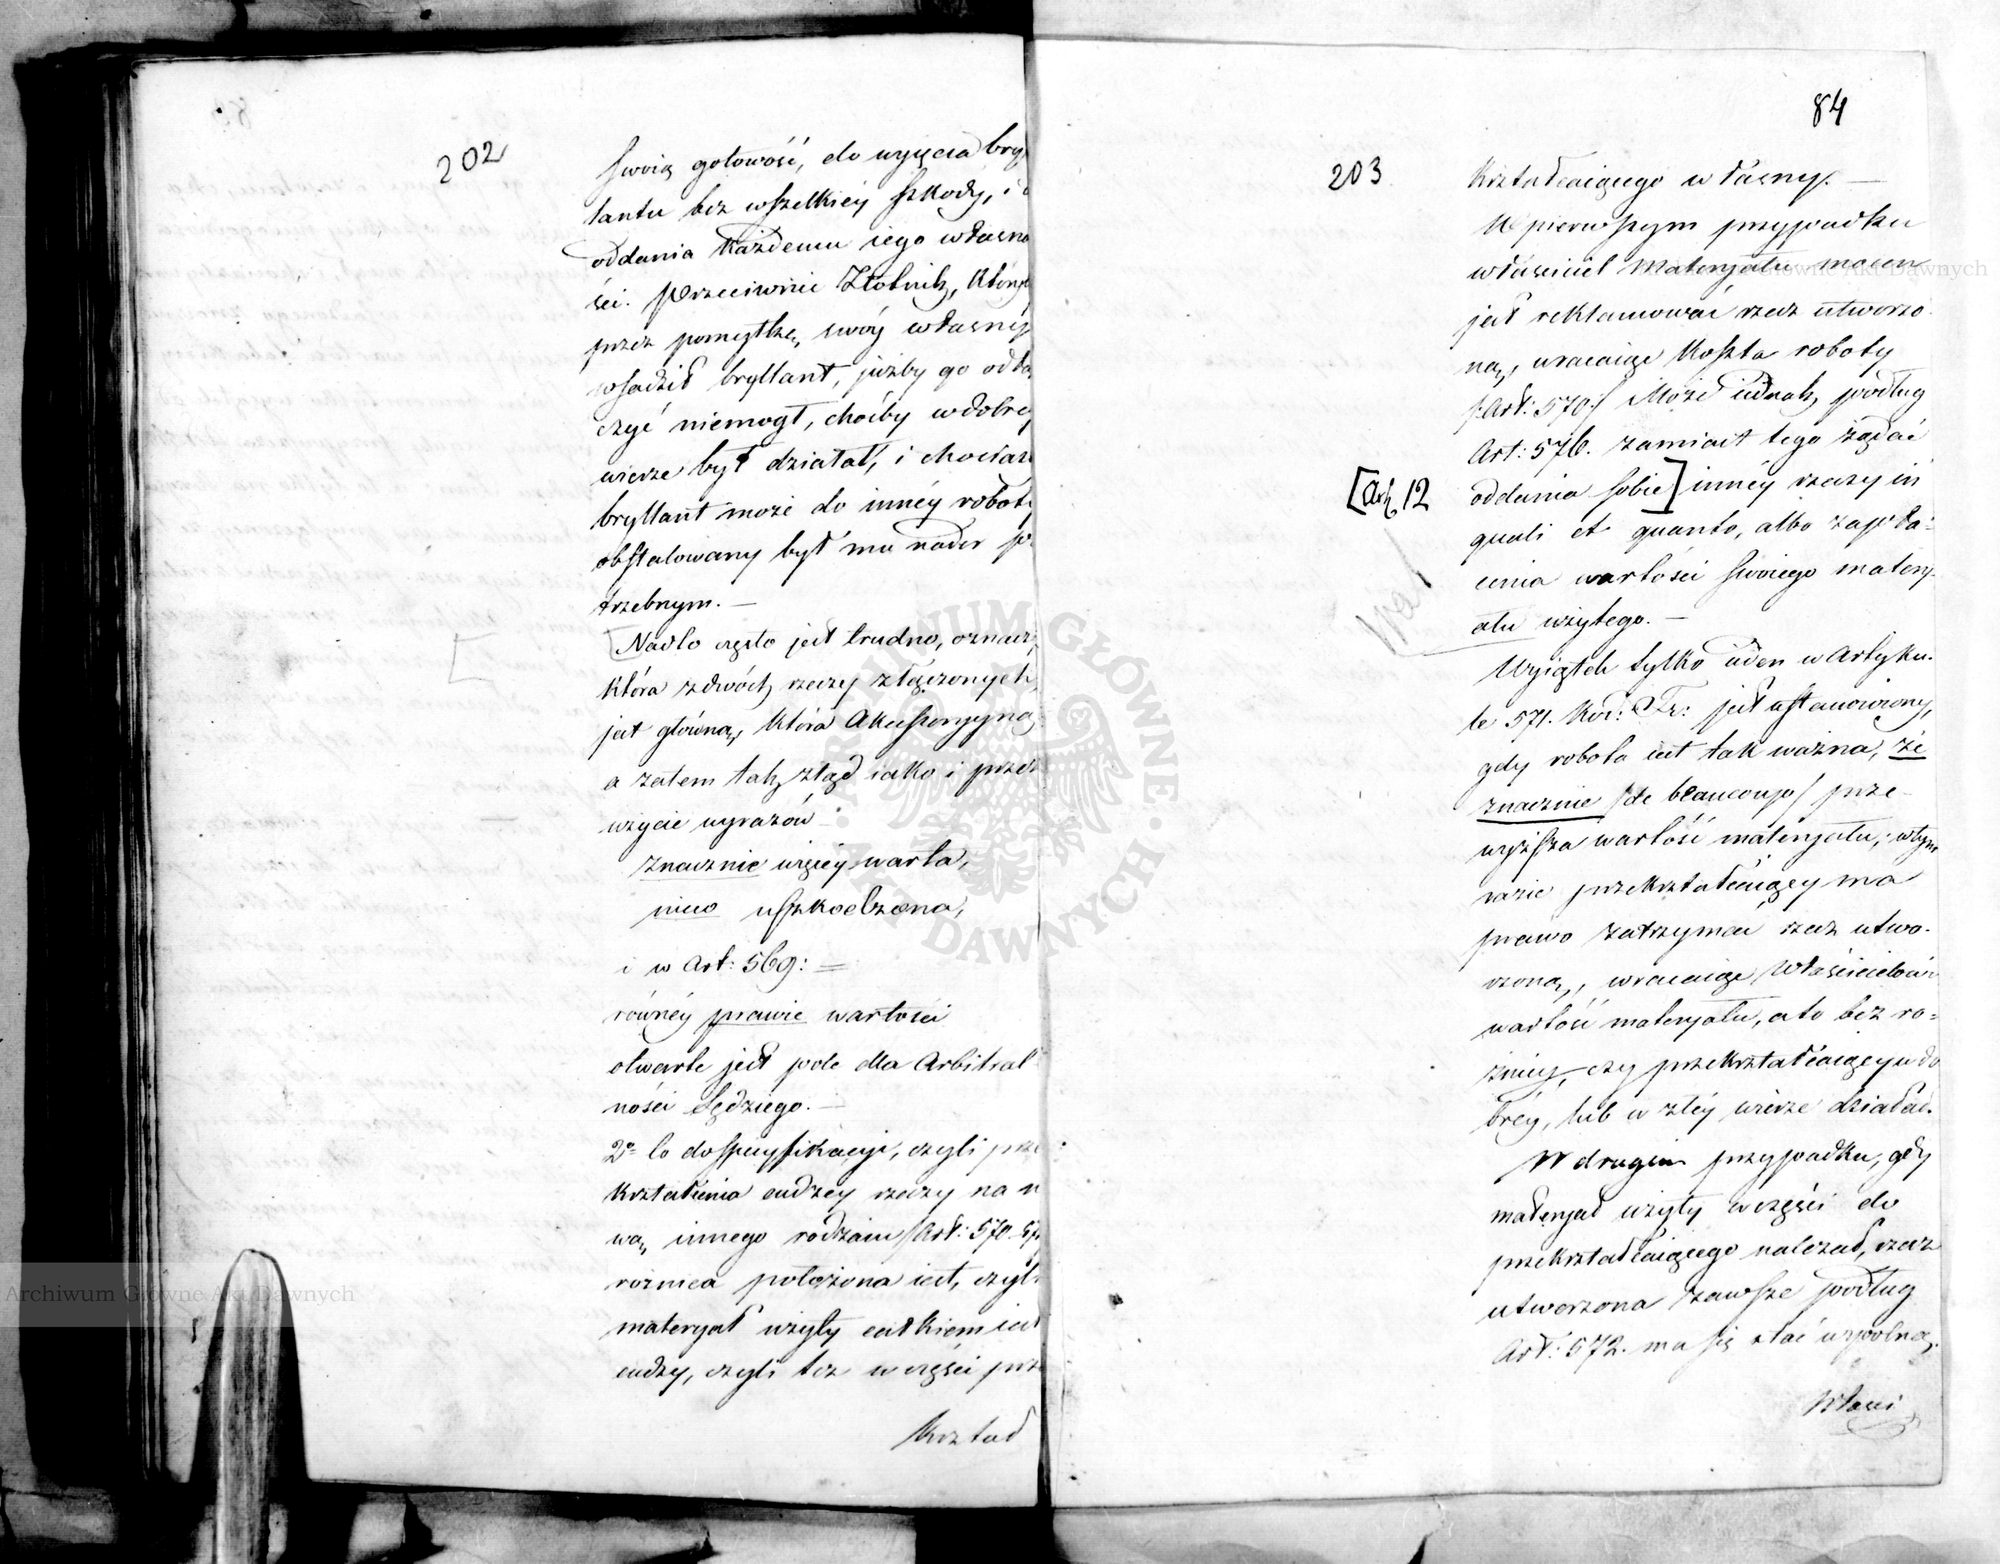 202
swoią gotowość, do wyięcia bry
lantu bez wszelkiéy szkody, i
oddania każdemu iego własno
ści. Przeciwnie Złotnik, który
przez pomyłkę, swóy własny
wsadził bryllant, iużby go odłą
czyć niemógł, choćby w dobréy
wierze był działał, i chociaż
bryllant może do innéy roboty
obstalowany był mu nader po
trzebnym. —
[Nadto często jest trudno, oznacz
która z dwóch rzeczy złączonych,
jest główną, która Akcessoryyną,
a zatem tak ztąd iako i przez
użycie wyrazów —
znacznie więcéy warta,
nieco uszkodzona,
i w Art: 569: =
równéy prawie wartości
otwarte jest pole dla Arbitral
ności Sędziego. —
2o Co do specyfikacyi, czyli prze
kształcenia cudzey rzeczy na no
wą, innego rodzaiu /Art: 570. 57
różnica położona iest, czyli
materyał użyty całkiem iest
cudzy, czyli też w części prze
kształ
84
203
kształcaiącego własny. —
W pierwszym przypadku
właściciel Materyału mocen
jest reklamować rzecz utworzo
ną, wracaiąc koszta roboty
/:Art: 570:/ Może iednak, podług
Art: 576. zamiast tego żądać
[Art. 12
oddania sobie] innéy rzeczy in
quali et quanto, albo zapła:
cenia wartości swoiego matery
ału użytego. —
Wyiątek tylko ieden w Artyku.
le 571. Kod: Fr: jest ustanowiony,
gdy robota iest tak ważna, że
znacznie /de beaucoup/ prze-
wyższa wartość materyału; w tym
razie przekształcaiący ma
prawo zatrzymać rzecz utwo.
rzoną, wracaiąc Właścicielowi
wartość materyału, a to bez ro=
żnicy, czy przekształcaiący w do
bréy, lub w złéy wierze działał.
W drugim przypadku, gdy
materyał użyty w części do
przekształcaiącego należał, rzecz
utworzona zawsze podług
Art: 572. ma się stać wspólną.
Własci